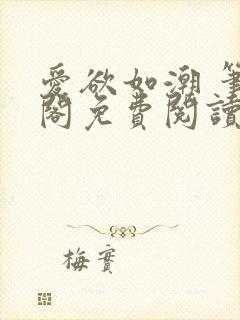 愛欲如潮 筆
閣免費閱讀
梅實